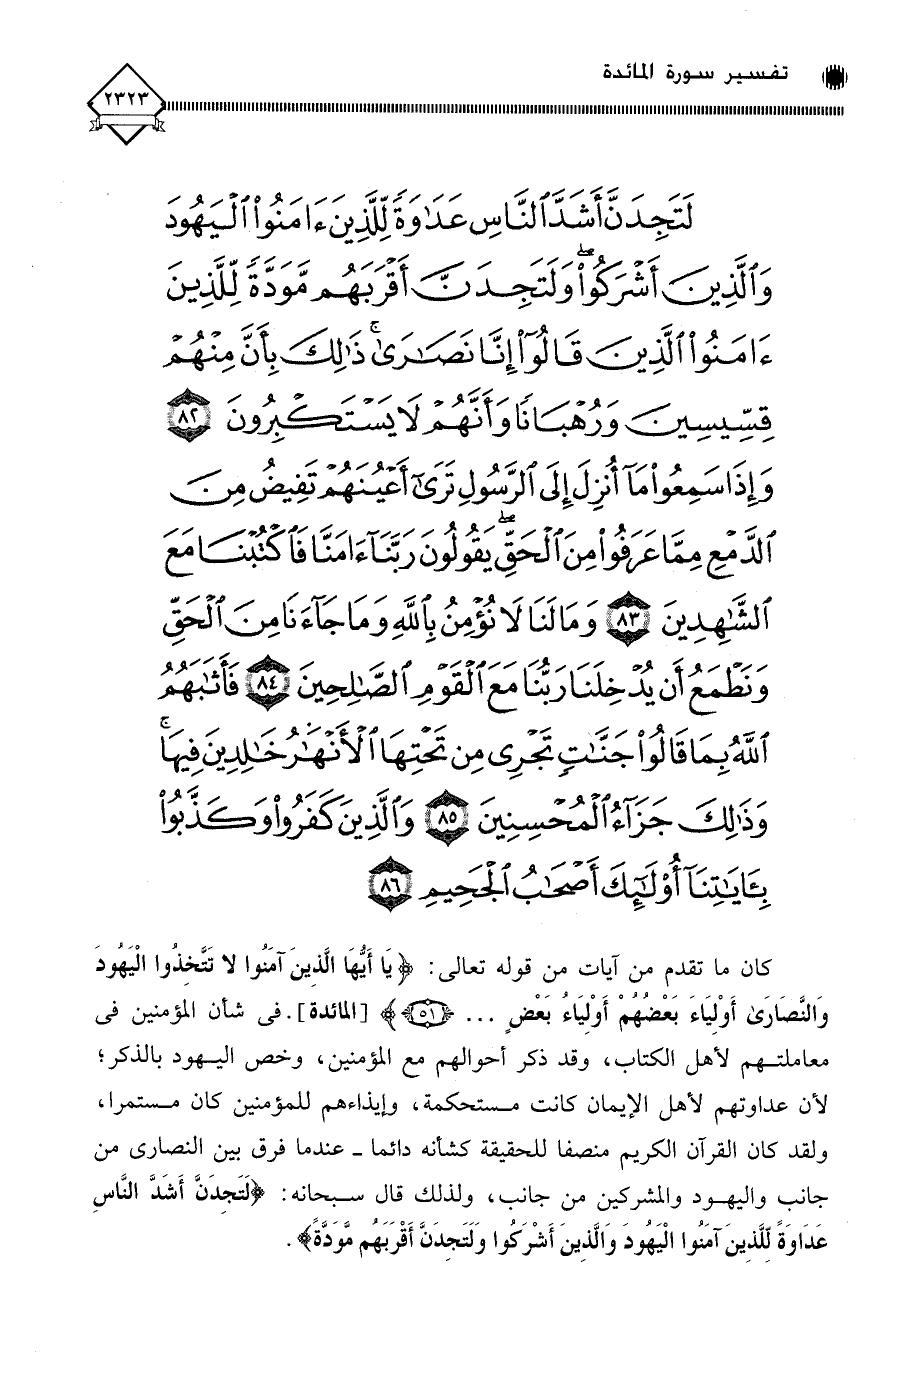 تفسير سورة المائدة
٢٣٢٣
لَتَجِدَنَّ أَشَدَّ ٱلنَّاسِ عَدَٰوَةً لِّلَّذِينَ ءَامَنُوا۟ ٱلْيَهُودَ
وَٱلَّذِينَ أَشْرَكُوا۟ ۖ وَلَتَجِدَنَّ أَقْرَبَهُم مَّوَدَّةً لِّلَّذِينَ
ءَامَنُوا۟ ٱلَّذِينَ قَالُوٓا۟ إِنَّا نَصَٰرَىٰ ۚ ذَٰلِكَ بِأَنَّ مِنْهُمْ
قِسِّيسِينَ وَرُهْبَانًا وَأَنَّهُمْ لَا يَسْتَكْبِرُونَ ٨٢
وَإِذَا سَمِعُوا۟ مَآ أُنزِلَ إِلَى ٱلرَّسُولِ تَرَىٰٓ أَعْيُنَهُمْ تَفِيضُ مِنَ
ٱلدَّمْعِ مِمَّا عَرَفُوا۟ مِنَ ٱلْحَقِّ ۖ يَقُولُونَ رَبَّنَآ ءَامَنَّا فَٱكْتُبْنَا مَعَ
ٱلشَّٰهِدِينَ ٨٣ وَمَا لَنَا لَا نُؤْمِنُ بِٱللَّهِ وَمَا جَآءَنَا مِنَ ٱلْحَقِّ
وَنَطْمَعُ أَن يُدْخِلَنَا رَبُّنَا مَعَ ٱلْقَوْمِ ٱلصَّٰلِحِينَ ٨٤ فَأَثَٰبَهُمُ
ٱللَّهُ بِمَا قَالُوا۟ جَنَّٰتٍ تَجْرِى مِن تَحْتِهَا ٱلْأَنْهَٰرُ خَٰلِدِينَ فِيهَا ۚ
وَذَٰلِكَ جَزَآءُ ٱلْمُحْسِنِينَ ٨٥ وَٱلَّذِينَ كَفَرُوا۟ وَكَذَّبُوا۟
بِـَٔايَٰتِنَآ أُو۟لَٰٓئِكَ أَصْحَٰبُ ٱلْجَحِيمِ ٨٦
كان ما تقدم من آيات من قوله تعالى: ﴿يَا أَيُّهَا الَّذِينَ آمَنُوا لا تَتَّخِذُوا الْيَهُودَ
وَالنَّصَارَىٰ أَوْلِيَاءَ بَعْضُهُمْ أَوْلِيَاءُ بَعْضٍ ... ﴿٥١﴾﴾ [المائدة]. فى شأن المؤمنين فى
معاملتهم لأهل الكتاب، وقد ذكر أحوالهم مع المؤمنين، وخص اليهود بالذكر؛
لأن عداوتهم لأهل الإيمان كانت مستحكمة، وإيذاءهم للمؤمنين كان مستمرا،
ولقد كان القرآن الكريم منصفا للحقيقة كشأنه دائما - عندما فرق بين النصارى من
جانب واليهود والمشركين من جانب، ولذلك قال سبحانه: ﴿لَتَجِدَنَّ أَشَدَّ النَّاسِ
عَدَاوَةً لِّلَّذِينَ آمَنُوا الْيَهُودَ وَالَّذِينَ أَشْرَكُوا وَلَتَجِدَنَّ أَقْرَبَهُم مَّوَدَّةً﴾.